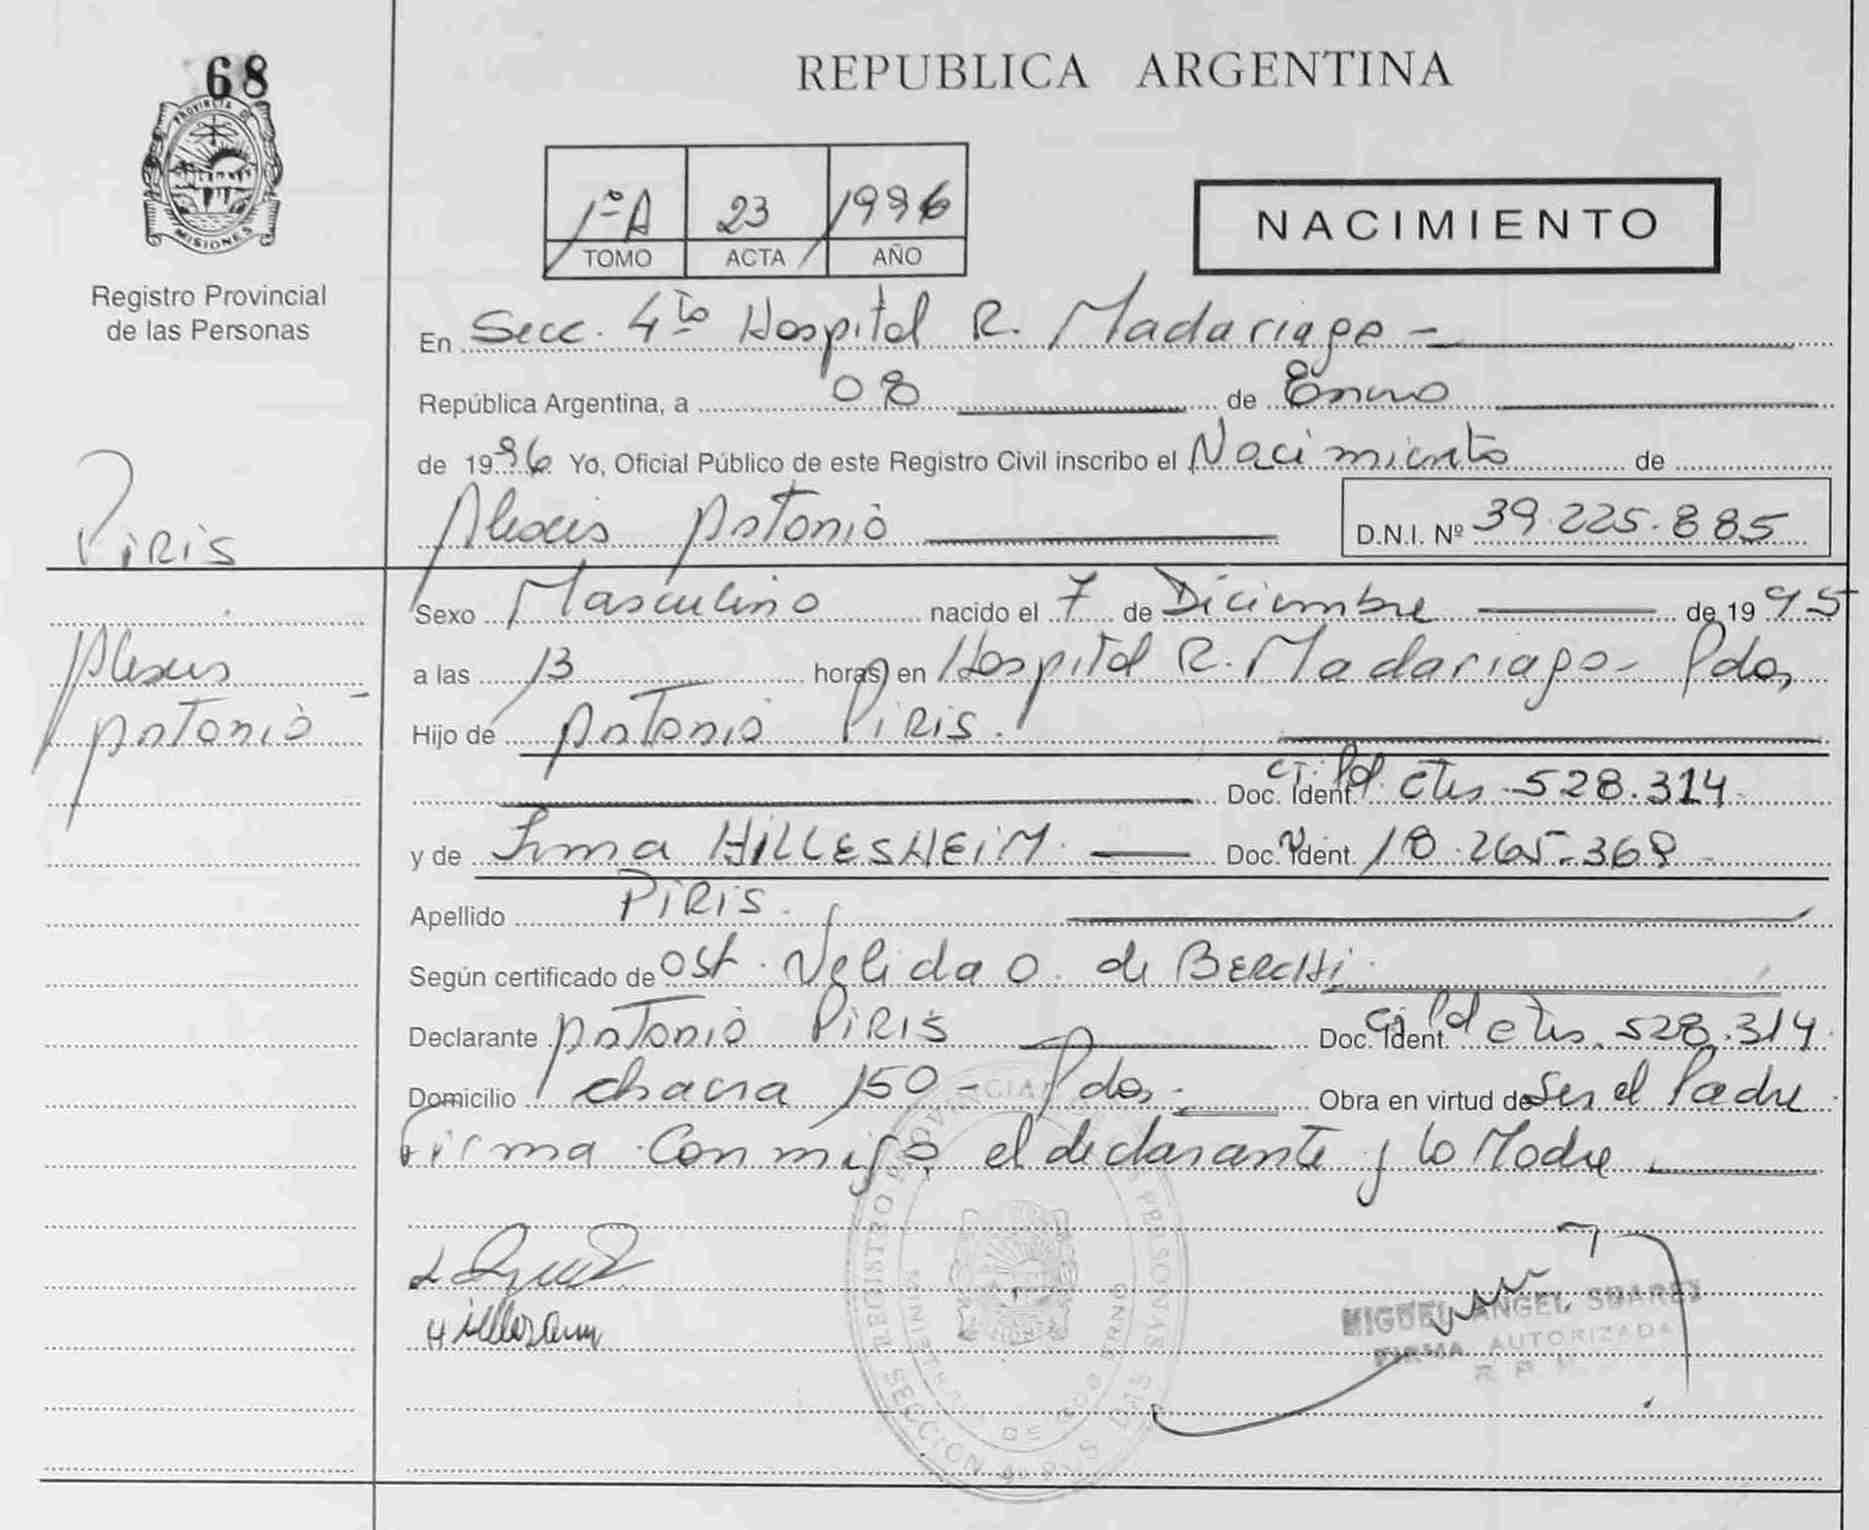 68
PROVINCIA DE
MISIONES
Registro Provincial
de las Personas
REPUBLICA ARGENTINA
1º A 23 1996
TOMO ACTA AÑO
NACIMIENTO
En Secc. 4ta Hospital R. Madariaga -
República Argentina, a 08 de Enero
de 1996 Yo, Oficial Público de este Registro Civil inscribo el Nacimiento de
Alexis Antonio D.N.I. Nº 39.225.885
PIRIS
Alexis
Antonio -
Sexo Masculino nacido el 7 de Diciembre de 1995
a las 13 horas en Hospital R. Madariaga - Pdas
Hijo de Antonio PIRIS.
Doc. Ident. CI. Pol. Ctes. 528.314
y de Irma HILLESHEIM. Doc. Ident. 18.265.368
Apellido PIRIS.
Según certificado de Ost. Nelida O. de BERCHI.
Declarante Antonio PIRIS Doc. Ident. CI. Pol Ctes. 528.314
Domicilio chacra 150 - Pdas. Obra en virtud de Ser el Padre
Firma conmigo el declarante y la Madre
MIGUEL ANGEL SUAREZ
FIRMA AUTORIZADA
R P
REGISTRO PROVINCIAL PERSONAS
SECCION